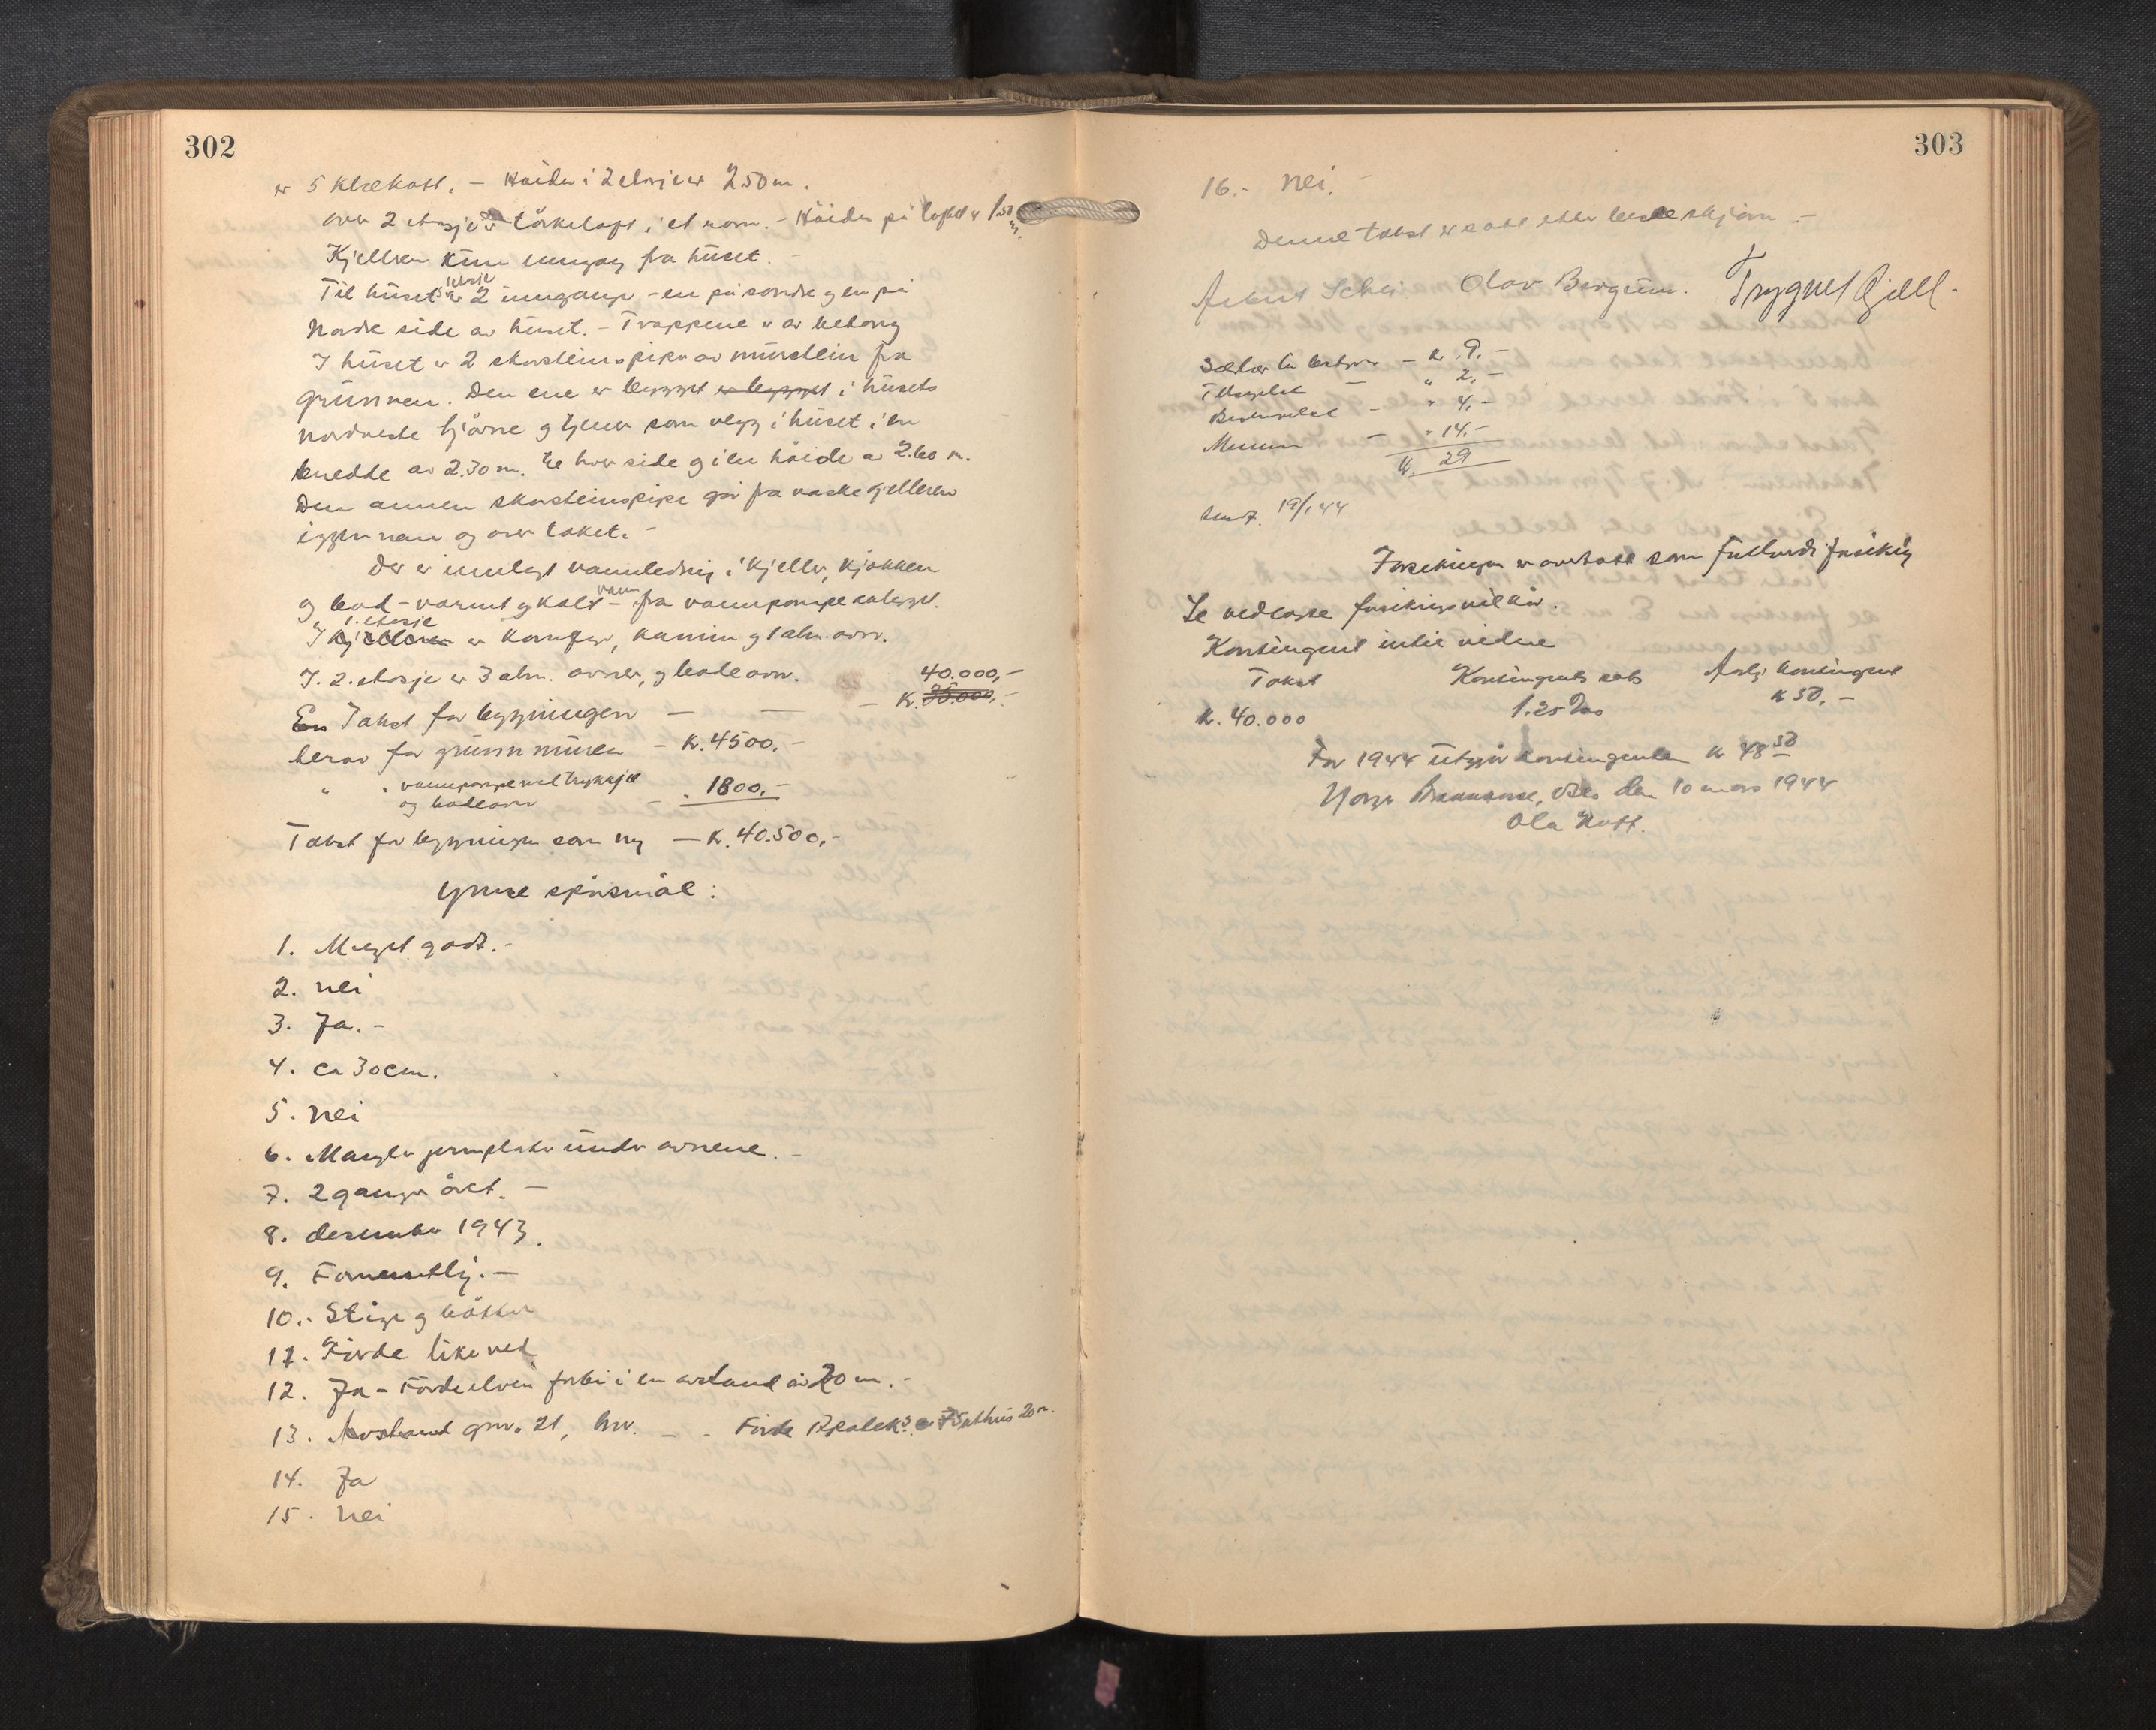 302
er 5 klækott. – Høiden i 2 etasje er 2.50 m.
over 2 etasje er törkeloft, i et rom. – Höiden på loftet er 1.50 m.
Kjelleren kun inngang fra huset. –
Til huset 1 etasje er 2 innganger – en på sondre og en på
nordre side av huset. – Trappene er av betong
I huset er 2 skorsteinspiper av murstein fra
grunnen. Den ene er bygget er bygget i husets
nordveste hjörne og tjener som vegg i huset i en
bredde av 2.30 m. til hver side og i en höide av 2.60 m.
Den annen skorsteinspipe går fra vaskekjelleren
igjennem og over taket. –
Der er innlagt vannledning i kjeller, kjökken
og bad – varmt og kalt vann – fra vannpumpeanlegget.
I kjelleren 1. etasje er komfyr, kamin og 1 alm. ovn.
I. 2. etasje er 3 alm. ovner, og badeovn.
40.000,-
En Takst for bygningen — — — Kr. 35.000,-
herav for grunnmuren – Kr. 4500.–
" " vannpumpe med trykkjel
og badeovn – " 1800.–
Takst for bygningen som ny — Kr. 40.500,-
Ymse spörsmål:
1. Meget godt. –
2. nei
3. Ja. –
4. ca 30 cm.
5. nei
6. Mangler jernplater under ovnene. –
7. 2 ganger året. –
8. desember 1943.
9. Forventlig. –
10. – Stige og bötter
11. Förde like ved
12. Ja – Förde elven forbi i en avstand av 20 m. –
13. Avstand gnr. 21, bnr. – – Förde Apotek's uthus 20 m.
14. Ja
15. nei
303
16. – nei. –
Denne takst er satt etter beste skjönn –
Olav Bergum. Trygve Gjell.
– kr. 9. –
– " 2. –
Beskrivelse – " 4. –
– " 14. –
Kr. 29
Sendt 19/1 44
Forsikringen er overtatt som fullverdiforsikring
Se vedlagte forsikringsvilkår.
Kontingent inntil videre
Takst Kontingents sats Årlig kontingent
Kr. 40.000 1.25 ‰ kr 50,-
For 1944 utgjör kontingenten kr 48 50
Norges Brannkasse, Oslo den 10 mars 1944
Ola Hoff.